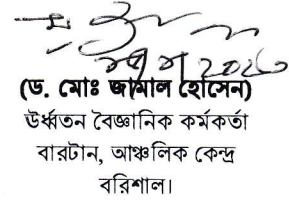 (ড. মোঃ জামাল হোসেন)
উর্ধ্বতন বৈজ্ঞানিক কর্মকর্তা
বারটান, আঞ্চলিক কেন্দ্র
বরিশাল।